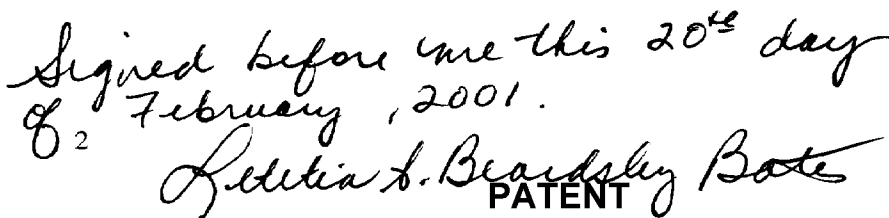 Signed before me this 20th day
of 2 February, 2001.
Letitia S. Beardsley Bates
PATENT